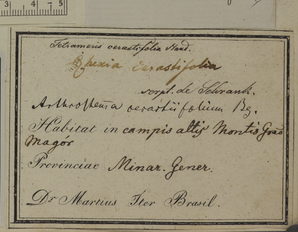 Tetrameris cerastifolia Naud.
Rhexia cerastifolia
script. de Schrank.
Arthrostemma cerastiifolium Bg.
Habitat in campis altis Montis Grao
Magor
Provinciae Minar. Gener.
Dr Martius Iter Brasil.